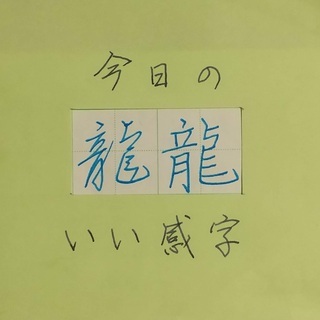 今日の
龍龍
いい感字